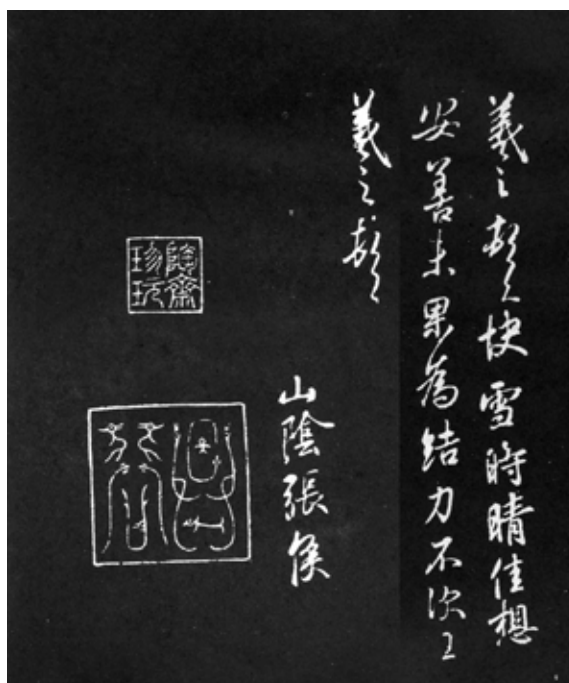 羲之頓首快雪時晴佳想
安善未果為結力不次王
羲之頓首
山陰張侯
陶齋
珍玩